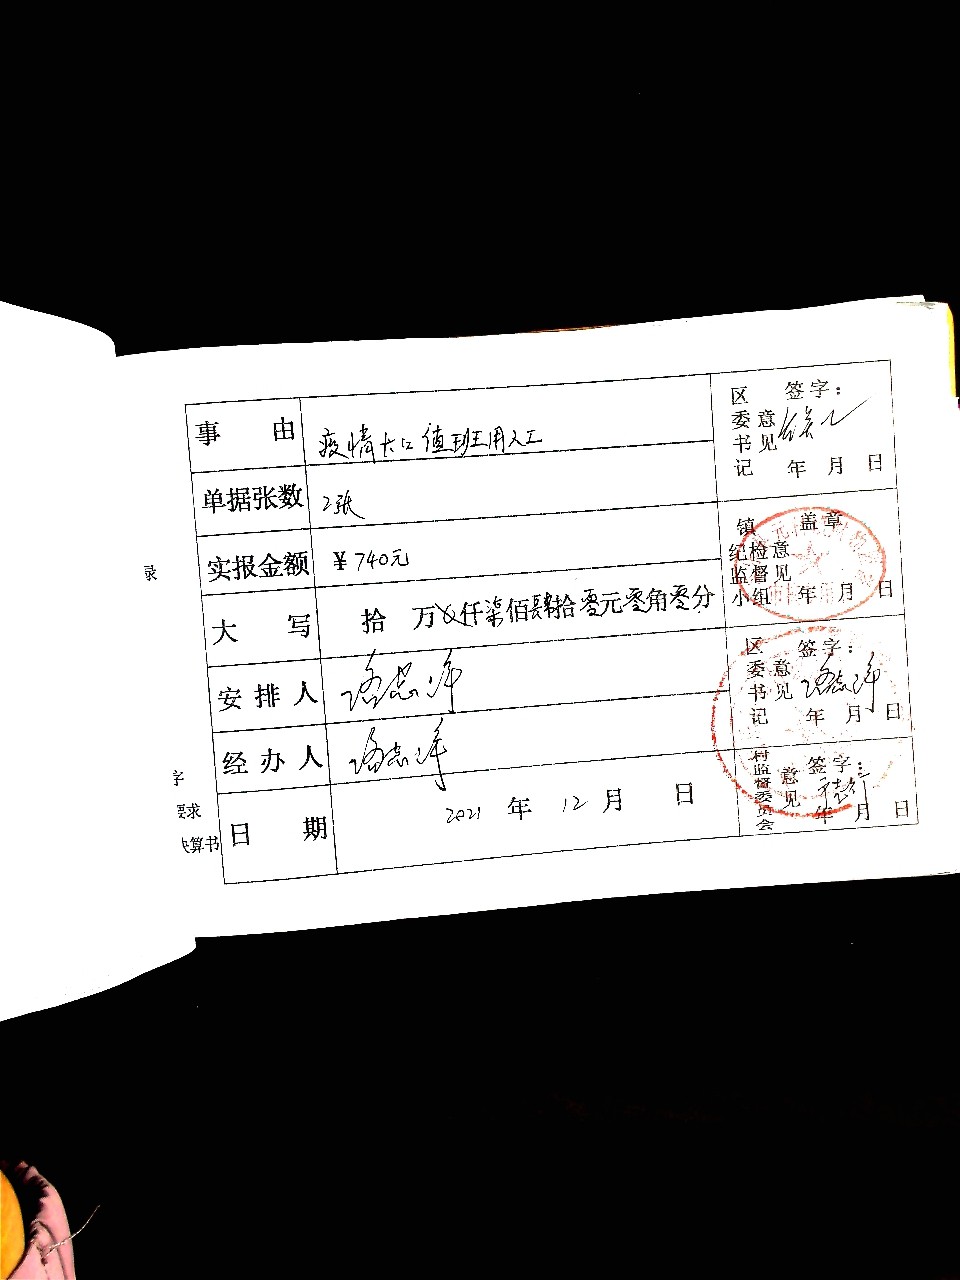 事由 疫情大口值班用人工
单据张数 2张
实报金额 ¥740元
大写 拾 万 仟柒佰肆拾零元零角零分
安排人 路志洋
经办人 路志洋
日期 2021年12月 日
区委书记意见 签字：
年 月 日
镇纪检监督小组意见 盖章
年 月 日
区委书记意见 签字： 路志洋
年 月 日
村监督委员会意见 签字：
年 月 日
录
字
要求
决算书